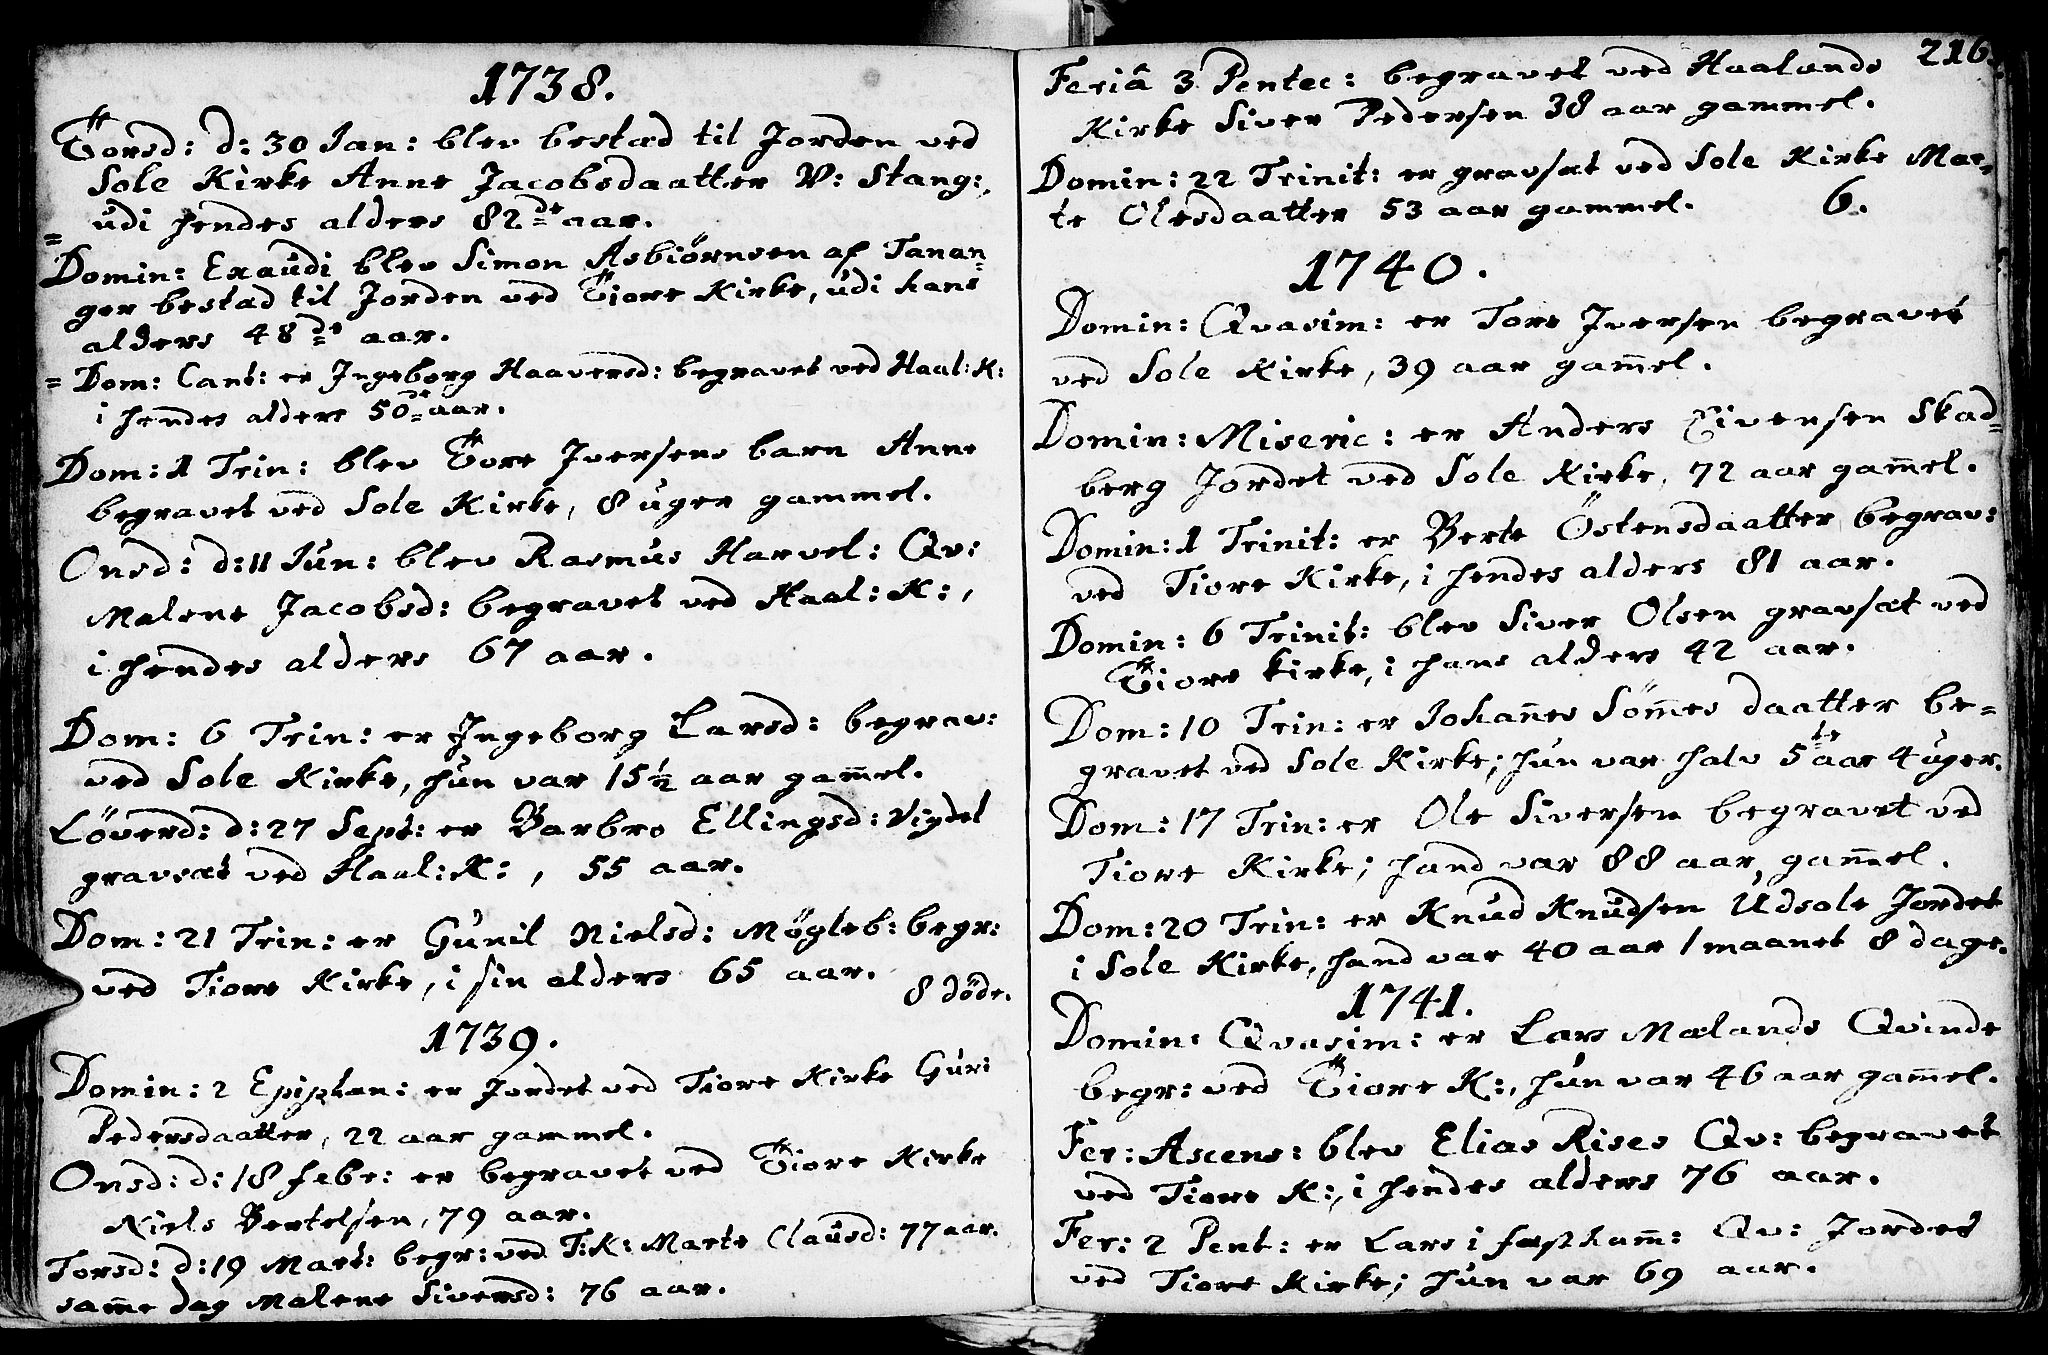 1738.
Torsd: d: 30 Jan: blev bestæd til Jorden ved
Sole Kirke Anne Jacobsdaatter V: Stang:,
udi hendes alders 82de aar.
Domin: Exaudi blev Simon Asbiørnsen af Tanan=
ger bestæd til Jorden ved Tiore Kirke, udi hans
alders 48de aar.
= Dom: Cant: er Ingeborg Haaversd: begravet ved Haal: K:
i hendes alders 50de aar.
Dom: 1 Trin: blev Tore Iversens barn Anne
begravet ved Sole Kirke, 8 uger gammel.
Onsd: d: 11 Jun: blev Rasmus Harvel: Qv:
Malene Jacobsd: begravet ved Haal: K:,
i hendes alders 67 aar.
Dom: 6 Trin: er Ingeborg Larsd: begrav:
ved Sole Kirke, hun var 15½ aar gam̅el.
Löverd: d: 27 Sept: er Barbro Ellingsd: Vigdel
gravsæt ved Haal: K:, 55 aar.
Dom: 21 Trin: er Gunil Nielsd: Mögleb: begr:
ved Tiore Kirke, i sin alders 65 aar.
8 döde.
1739.
Domin: 2 Epiphan: er Jordet ved Tiore Kirke Guri
Pedersdaatter, 22 aar gammel.
Onsd: d: 18 febr: er begravet ved Tiore Kirke
Niels Bertelsen, 79 aar.
Torsd: d: 19 Mart: begr: ved T: K: Marte Clausd: 77 aar.
sam̅e dag Malene Siversd: 76 aar.
216.
Feriâ 3 Pentec: begravet ved Haalands
Kirke Siver Pedersen 38 aar gammel.
Domin: 22 Trinit: er gravsæt ved Sole Kirke Mar=
te Olesdaatter 53 aar gammel. 6.
1740.
Domin: Qvasim: er Tore Iversen begravet
ved Sole Kirke, 39 aar gam̅el.
Domin: Miseric: er Anders Eivensen Skad=
berg Jordet ved Sole Kirke, 72 aar gam̅el.
Domin: 1 Trinit: er Berte Östensdaatter begrav:
ved Tiore Kirke, i hendes alders 81 aar.
Domin: 6 Trinit: blev Siver Olsen gravsæt ved
Tiore Kirke, i hans alders 42 aar.
Dom: 10 Trin: er Johan̅es Söm̅es daatter be=
gravet ved Sole Kirke; hun var halv 5te aar 4 uger.
Dom: 17 Trin: er Ole Siversen begravet ved
Tiore Kirke; hand var 88 aar gam̅el.
Dom: 20 Trin: er Knud Knudsen Udsole Jordet
i Sole Kirke, hand var 40 aar 1 maanet 8 dage.
1741.
Domin: Qvasim: er Lars Mælands Qvinde
begr: ved Tiore K:, hun var 46 aar gam̅el.
Fer: Ascens: blev Elias Rises Qv: begravet
ved Tiore K:, i hendes alders 76 aar.
Fer: 2 Pent: er Lars i Qv: Jordet
ved Tiore Kirke; hun var 69 aar.